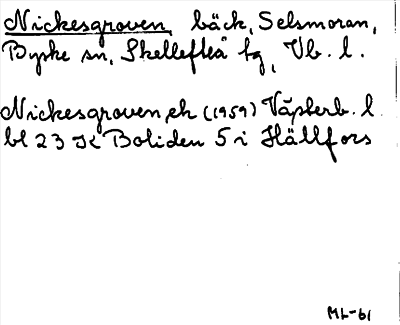 Nickesgroven, bäck, Selsmoran,
Byske sn, Skellefteå tg, Vb. l.
Nickesgroven, ek (1959) Västerb. l.
bl 23 K Boliden 5 i Hällfors
ML-61